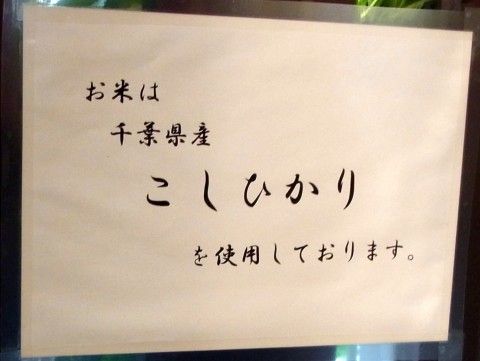 お米は
千葉県産
こしひかり
を使用しております。